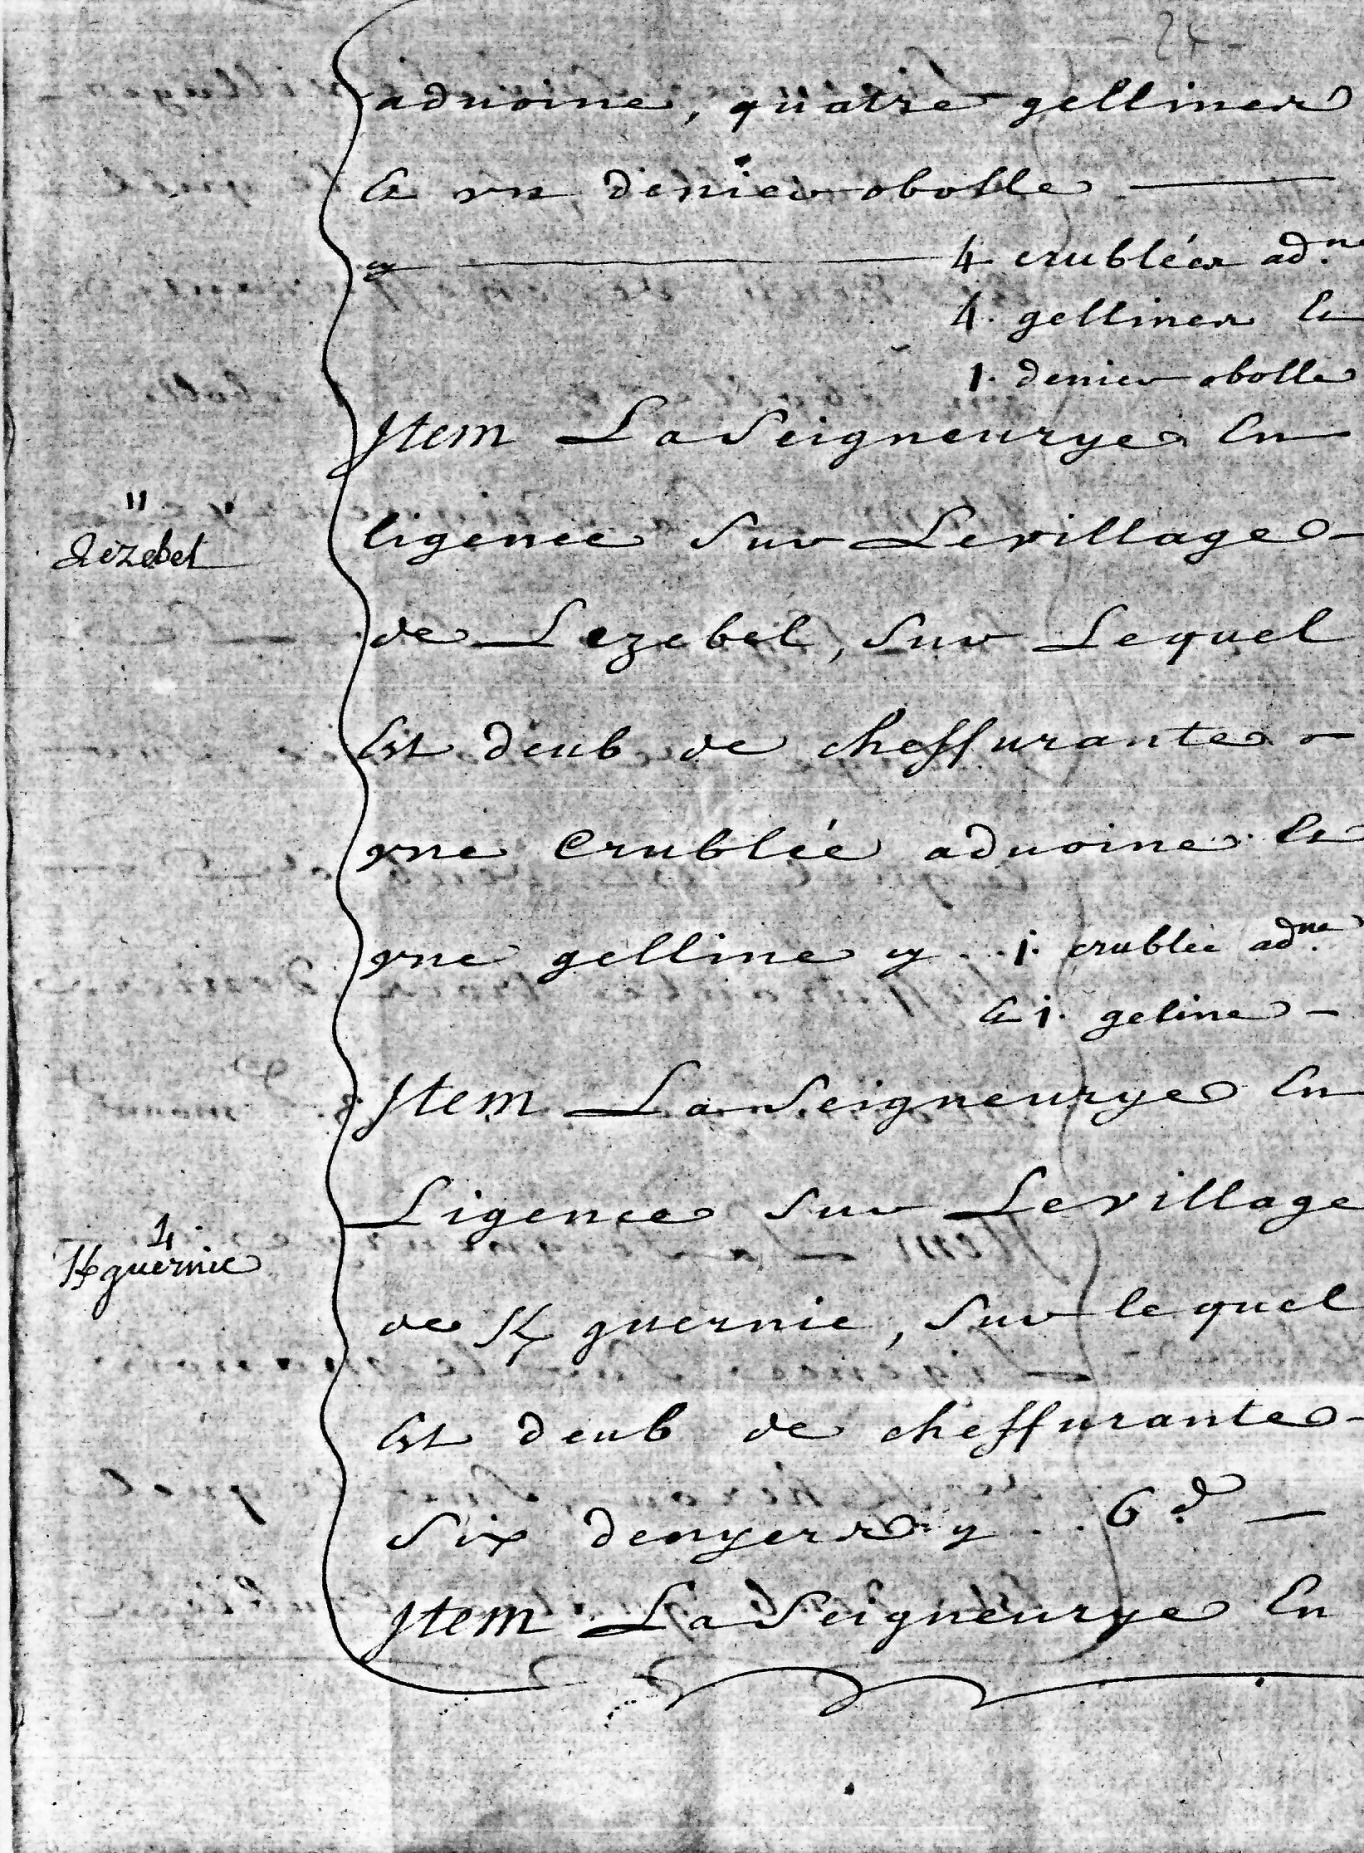 - 24 -
advoine, quatre gellines
& vn denier obolle
y 4 crublées ad.ne
4. gellines &
1. denier obolle
Jtem La Seigneurye En
11
Lezebel
ligence Sur Le village
de Lezebel, Sur Lequel
Est deub de cheffurante
vne Crublée advoine Et
vne gelline y .. j. crublée ad.ne
& j. geline
Jtem La Seigneurye En
Ligence Sur Le village
4
K guernic
de K guernic, Sur lequel
Est deub de cheffurante
Six denyers y .. 6 d.
Jtem La Seigneurye En